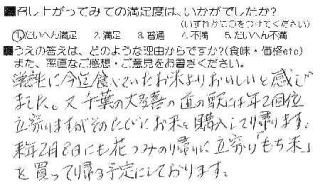 ■召し上がってみての満足度は、いかがでしたか?
(いずれかに○をつけてください)
①たいへん満足 2.満足 3.普通 4.不満 5.たいへん不満
■うえの答えは、どのような理由からですか?(食味・価格etc)
また、率直なご感想・ご意見をお書きください。
率直に今迄食べていたお米よりおいしいと感じ
ました。又千葉の大多喜の道の駅には年2回位
立寄りますがそのたびにお米を購入して帰ります。
来年2月8日にも花つみの帰りに立寄り「もち米」
を買って帰る予定にしております。